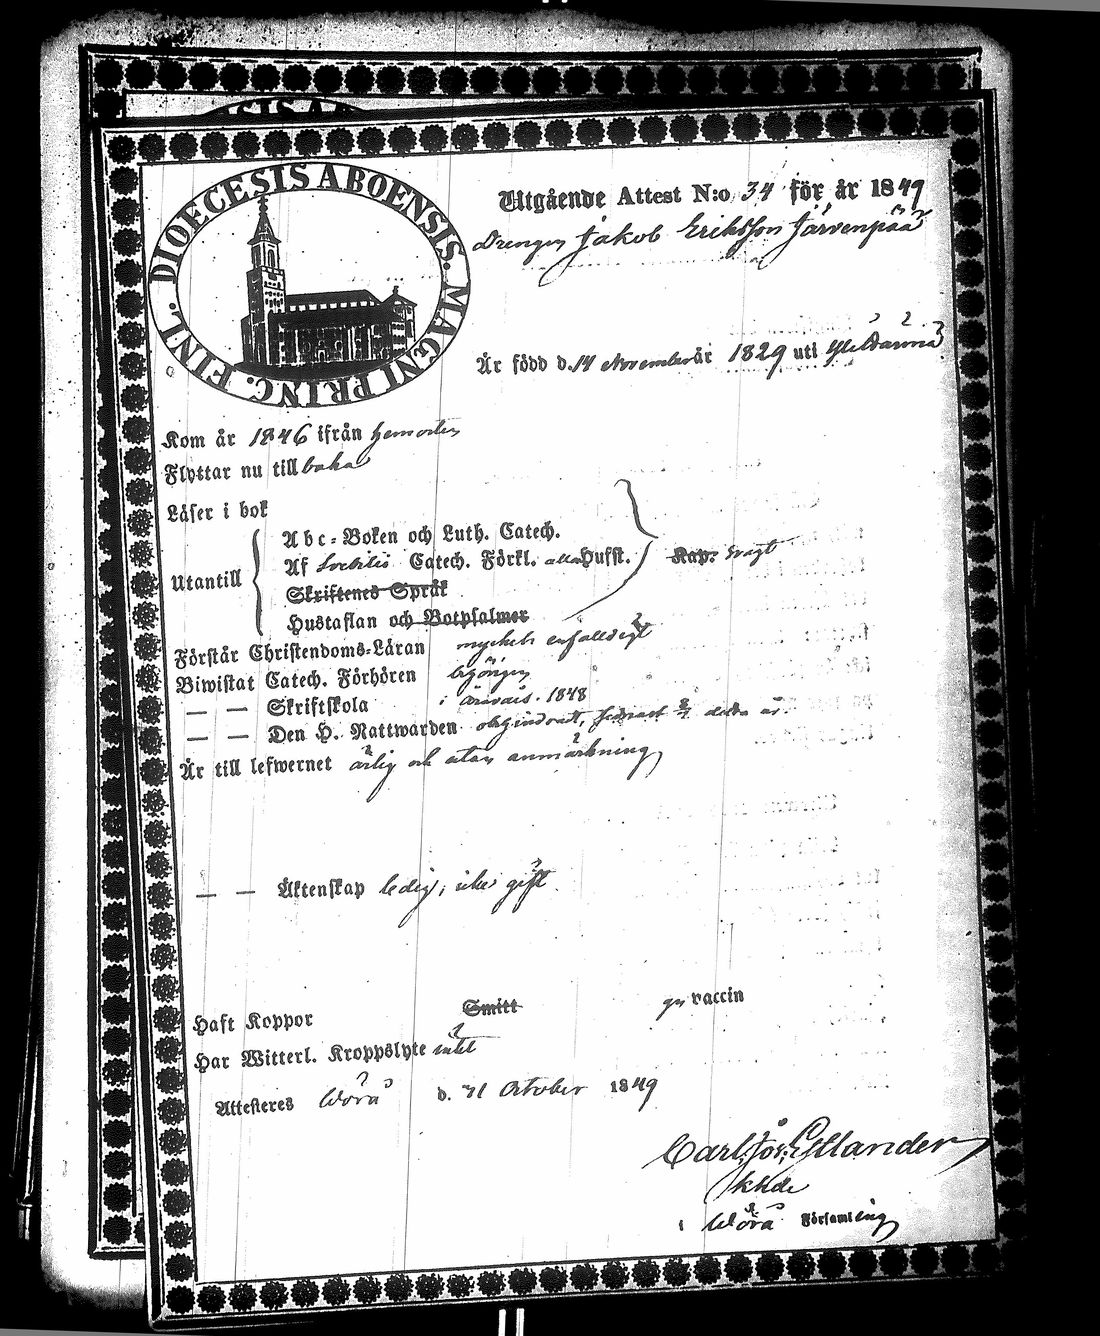 DIOECESIS ABOENSIS. MAGNI PRINC. FINL.
Utgående Attest N:o 34 för år 1849
Drengen Jakob Eriksson Järvenpää
Är född d. 14 November år 1829 uti
Kom år 1846 ifrån hemorten
Flyttar nu till baka
Läser i bok
Utantill
Abc-Boken och Luth. Catech.
Af Svebilii Catech. Förkl. alla Hufst. Kap. svagt
Skriftenes Språk
Hustaflan och Botpsalmer
Förstår Christendoms-Läran mycket enfalldigt
Biwistat Catech. Förhören
— — Skriftskola i 1848
— — Den H. Nattwarden detta år.
Är till lefwernet ärlig och utan anmärkning
— — Äktenskap ledig, icke gift
Haft Koppor Smitt vaccin
Har Witterl. Kroppslyte intet
Attesteres Wörå d. 31 October 1849
Carl Jos.
i Wörå Församling